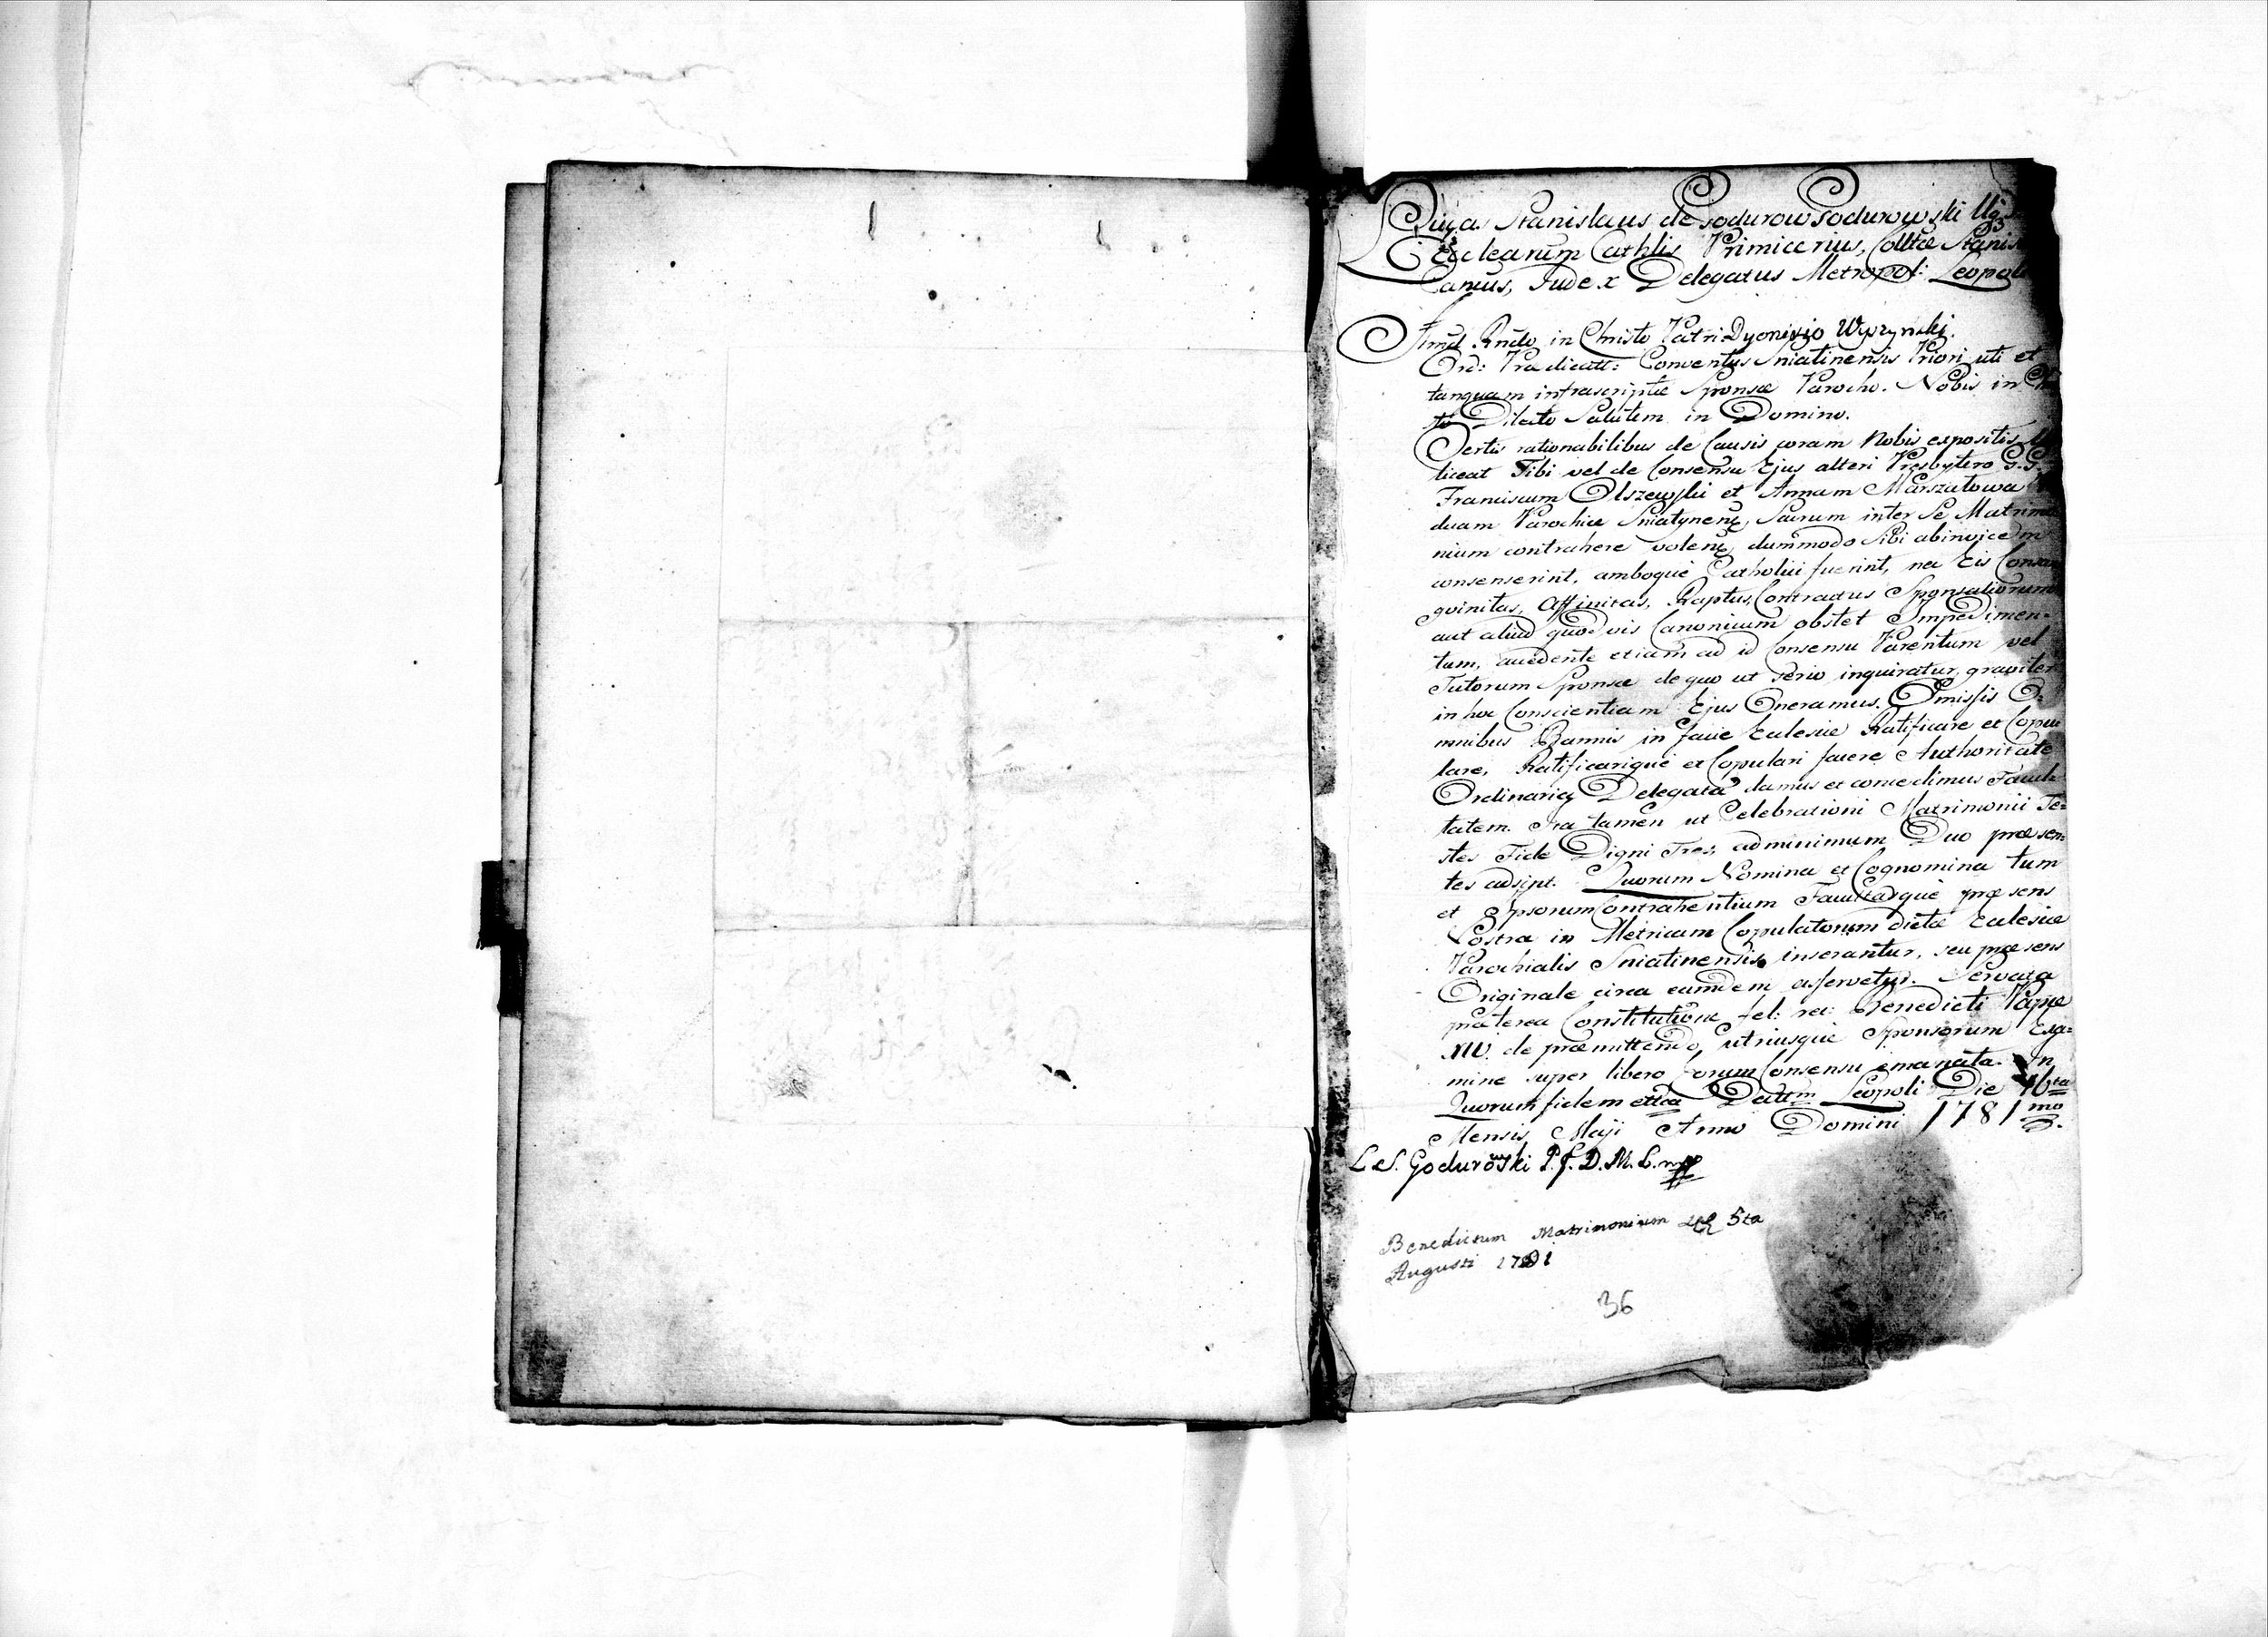 Lucas Stanislaus de Godurow Godurowski
Ecclearum Cathlis Primicerius, Colltæ Stanis
Canus, Judex Delegatus Metropol: Leopoli
Admd Rndo in Christo Patri Dyonizio Wyszynski.
Ord: Prædicatt: Conventus Sniatinensis Priori uti et
tanquam infrascriptæ Sponsæ Parocho. Nobis in Chri
sto Dilecto Salutem in Domino.
Certis rationabilibus de Causis coram Nobis expositis
liceat Tibi vel de Consensu Ejus alteri Presbytero G. G.
Franciscum Olszewski et Annam Marszałowa Vi
duam Parochiæ Sniatynens, Sacrum inter Se Matrimo
nium contrahere volens, dummodo Sibi abinvicem
consenserint, amboque Catholici fuerint, nec Eis Consan
gvinitas, Affinitas, Raptus, Contractus Sponsaliorum
aut aliud quodvis Canonicum obstet Impedimen-
tum, accedente etiam ad id Consensu Parentum vel
Tutorum Sponsæ de quo ut serio inquiratur, graviter
in hoc Conscientiam Ejus Oneramus. Omissis O-
mnibus Bannis in facie Ecclesiæ Ratificare et Copu
lare, Ratificarique et Copulari facere Authoritate
Ordinaria Delegata damus et concedimus Facul-
tatem. Ita tamen ut Celebrationi Matrimonii Te=
stes Fide Digni Tres, adminimum Duo præsen=
tes adsint. Quorum Nomina et Cognomina tum
et Ipsorum Contrahentium Facultasque præsens
Nostra in Metricam Copulatorum dictæ Ecclesiæ
Parochialis Sniatinensis inserantur, seu præsens
Originale circa eamdem asservetur. Servata
præterea Constitutione fel: rec: Benedicti Papæ
XIV. de præmittendo utriusque Sponsorum Exa=
mine super libero Eorum Consensu emanata. In
Quorum fidem ettca Datum Leopoli Die 16ta
Mensis Maji Anno Domini 1781mo.
L. S. Godurowski P. J. D. M. L. mpp
Benedictum Matrimonium 5ta
Augusti 1781
36